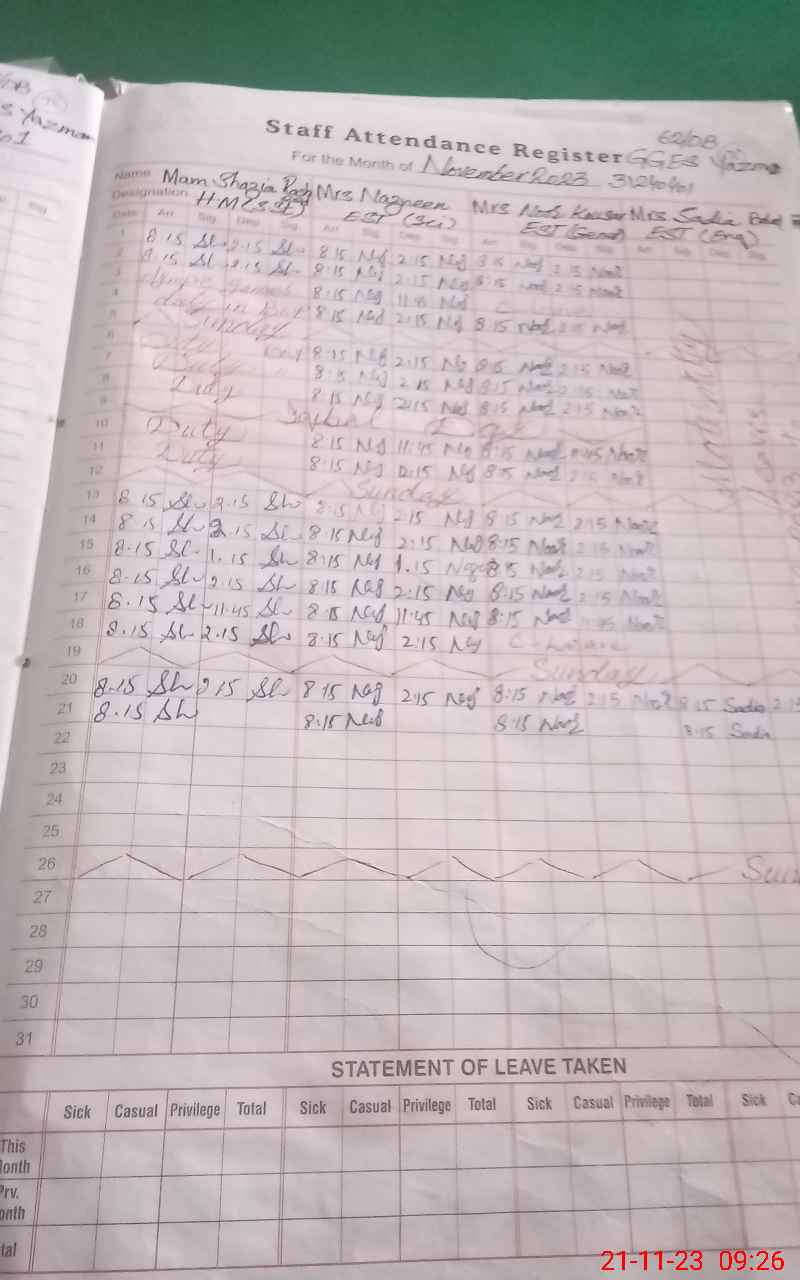 62/DB
Staff Attendance Register GGES Yazman
For the Month of November 2023 31240401
Name Mam Shazia Mrs Nazneen Mrs Noor Kausar Mrs Sadia
Designation HM (SST) EST (Sci) EST (Gend) EST (Eng)
Date Arr Sig Dep Sig Arr Sig Dep Sig Arr Sig Dep Sig Arr Sig Dep Sig
1 8.15 Sh 2.15 Sh 8:15 Naz 2:15 Naz 8:15 Noor 2:15 Noor
2 8.15 Sh 2.15 Sh 8:15 Naz 2:15 Naz 8:15 Noor 2:15 Noor
3 8:15 Naz 11:45 Naz
4 8:15 Naz 2:15 Naz 8:15 Noor 2:15 Noor
5 Sunday
6 8:15 Naz 2:15 Naz 8:15 Noor 2:15 Noor
7 Duty 8:15 Naz 2:15 Naz 8:15 Noor 2:15 Noor
8 Duty 8:15 Naz 2:15 Naz 8:15 Noor 2:15 Noor
9 Iqbal Day
10 Duty 8:15 Naz 11:45 Naz 8:15 Noor 11:45 Noor
11 Duty 8:15 Naz 2:15 Naz 8:15 Noor 2:15 Noor
12 Sunday
13 8.15 Sh 2.15 Sh 8:15 Naz 2:15 Naz 8:15 Noor 2:15 Noor
14 8.15 Sh 2.15 Sh 8:15 Naz 2:15 Naz 8:15 Noor 2:15 Noor
15 8.15 Sh 1.15 Sh 8:15 Naz 1.15 Naz 8:15 Noor 2:15 Noor
16 8.15 Sh 2.15 Sh 8:15 Naz 2:15 Naz 8:15 Noor 2:15 Noor
17 8.15 Sh 11.45 Sh 8:15 Naz 11:45 Naz 8:15 Noor 11:45 Noor
18 8.15 Sh 2.15 Sh 8:15 Naz 2:15 Naz C-Leave
19 Sunday
20 8.15 Sh 2.15 Sh 8:15 Naz 2:15 Naz 8:15 Noor 2:15 Noor 8:15 Sadia
21 8.15 Sh 8:15 Naz 8:15 Noor 8:15 Sadia
22
23
24
25
26 Sun
27
28
29
30
31
Maternity
Leave
STATEMENT OF LEAVE TAKEN
Sick Casual Privilege Total Sick Casual Privilege Total Sick Casual Privilege Total Sick Ca
This
onth
Prv.
onth
tal
21-11-23 09:26